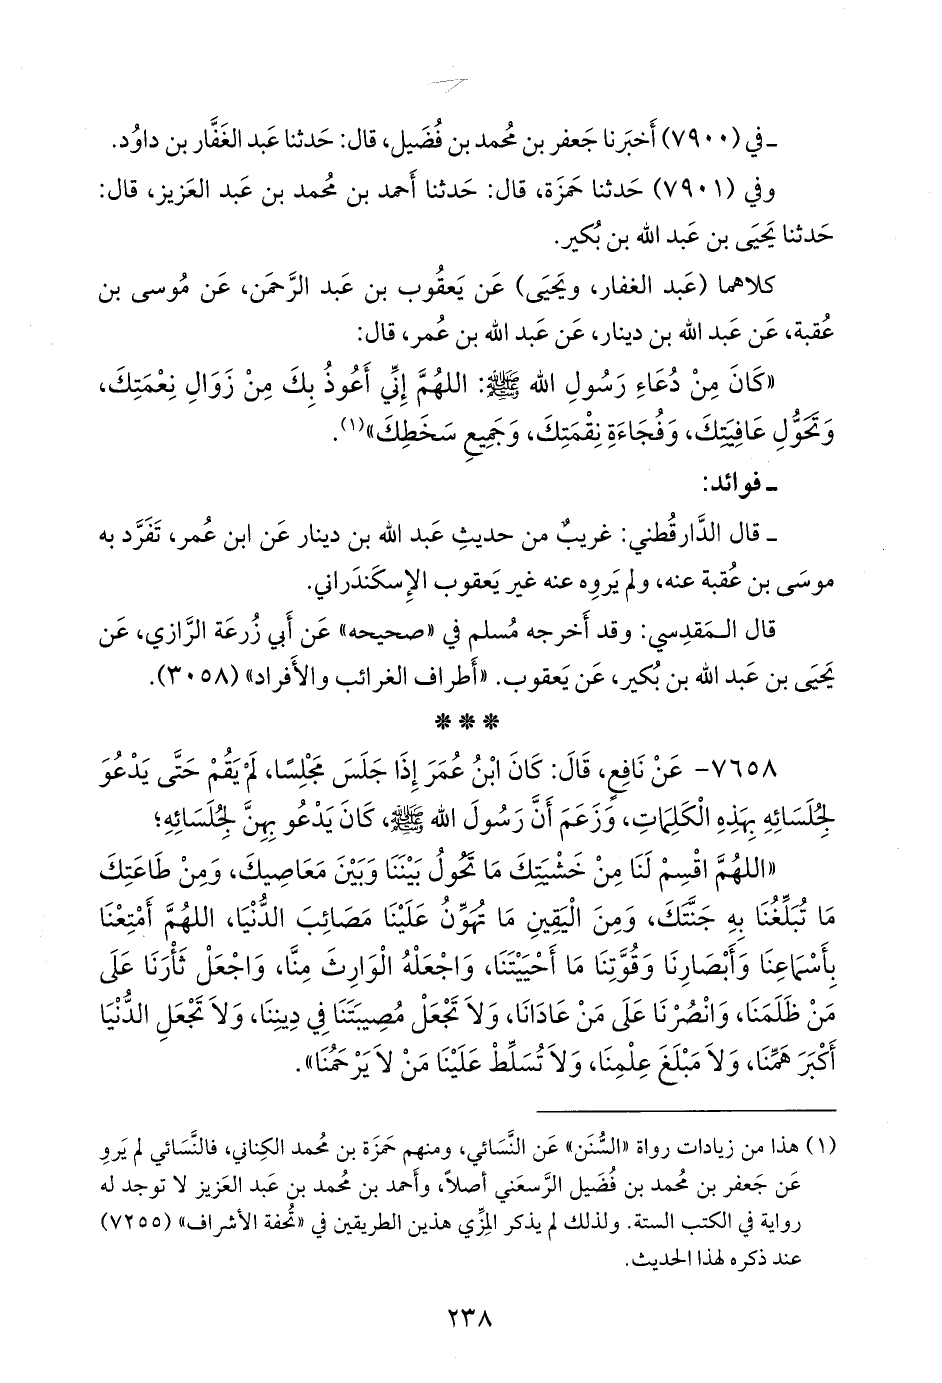 ـ في (٧٩٠٠) أَخبَرنا جَعفر بن مُحمد بن فُضَيل، قال: حَدثنا عَبد الغَفَّار بن داوُد.
وفي (٧٩٠١) حَدثنا حَمزَة، قال: حَدثنا أَحمد بن مُحمد بن عَبد العَزيز، قال:
حَدثنا يَحيَى بن عَبد الله بن بُكير.
كلاهما (عَبد الغفار، ويَحيَى) عَن يَعقُوب بن عَبد الرَّحمَن، عَن مُوسى بن
عُقبة، عَن عَبد الله بن دينار، عَن عَبد الله بن عُمر، قال:
«كَانَ مِنْ دُعَاءِ رَسُولِ الله ﷺ: اللهُمَّ إِنِّي أَعُوذُ بِكَ مِنْ زَوَالِ نِعْمَتِكَ،
وَتَحَوُّلِ عَافِيَتِكَ، وَفُجَاءَةِ نِقْمَتِكَ، وَجَمِيعِ سَخَطِكَ»(١).
ـ فوائد:
ـ قال الدَّارقُطني: غريبٌ من حديثِ عَبد الله بن دينار عَن ابن عُمر، تَفَرَّد به
موسَى بن عُقبة عنه، ولم يَروِه عنه غير يَعقوب الإِسكَندَراني.
قال الـمَقدِسي: وقد أَخرجه مُسلم في «صحيحه» عَن أَبي زُرعَة الرَّازي، عَن
يَحيَى بن عَبد الله بن بُكير، عَن يَعقوب. «أَطراف الغرائب والأَفراد» (٣٠٥٨).
***
٧٦٥٨- عَنْ نَافِعٍ، قَالَ: كَانَ ابْنُ عُمَرَ إِذَا جَلَسَ مَجْلِسًا، لَمْ يَقُمْ حَتَّى يَدْعُوَ
لِجُلَسَائِهِ بِهَذِهِ الْكَلِمَاتِ، وَزَعَمَ أَنَّ رَسُولَ الله ﷺ، كَانَ يَدْعُو بِهِنَّ لِجُلَسَائِهِ؛
«اللهُمَّ اقْسِمْ لَنَا مِنْ خَشْيَتِكَ مَا تَحُولُ بَيْنَنَا وَبَيْنَ مَعَاصِيكَ، وَمِنْ طَاعَتِكَ
مَا تُبَلِّغُنَا بِهِ جَنَّتَكَ، وَمِنَ الْيَقِينِ مَا تُهَوِّنُ عَلَيْنَا مَصَائِبَ الدُّنْيَا، اللهُمَّ أَمْتِعْنَا
بِأَسْمَاعِنَا وَأَبْصَارِنَا وَقُوَّتِنَا مَا أَحْيَيْتَنَا، وَاجْعَلْهُ الْوَارِثَ مِنَّا، وَاجْعَلْ ثَأْرَنَا عَلَى
مَنْ ظَلَمَنَا، وَانْصُرْنَا عَلَى مَنْ عَادَانَا، وَلَا تَجْعَلْ مُصِيبَتَنَا فِي دِينِنَا، وَلَا تَجْعَلِ الدُّنْيَا
أَكْبَرَ هَمِّنَا، وَلَا مَبْلَغَ عِلْمِنَا، وَلَا تُسَلِّطْ عَلَيْنَا مَنْ لَا يَرْحَمُنَا».
(١) هذا من زيادات رواة «السُّنَن» عَن النَّسَائي، ومنهم حَمزَة بن مُحمد الكِناني، فالنَّسَائي لم يَروِ
عَن جَعفر بن مُحمد بن فُضَيل الرَّسعَني أصلاً، وأَحمد بن مُحمد بن عَبد العَزيز لا توجد له
رواية في الكتب الستة. ولذلك لم يذكر المِزِّي هذين الطريقين في «تُحفة الأشراف» (٧٢٥٥)
عند ذكره لهذا الحديث.
٢٣٨